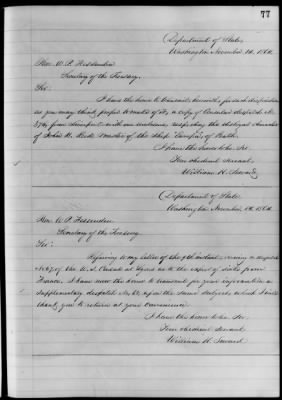 77
Department of State,
Washington November 14, 1864.
Hon. W. P. Fessenden
Secretary of the Treasury.
Sir:
I have the honor to transmit herewith, for such disposition
as you may think proper to make of it, a copy of Consular despatch No.
from Liverpool, with its enclosure respecting the
of John master of the Ship of Bath.
I have the honor to be, Sir,
Your obedient servant,
William H. Seward.
Department of State
Washington November 14, 1864
Hon. W. P. Fessenden
Secretary of the Treasury.
Sir:
Referring to my letter of the 9th instant covering a despatch
of the U. S. Consul at Lyons as to the export of silks from
France, I have now the honor to transmit for your information a
supplementary despatch No. upon the same subject, which I will
thank you to return at your convenience.
I have the honor to be Sir,
Your obedient servant
William H. Seward